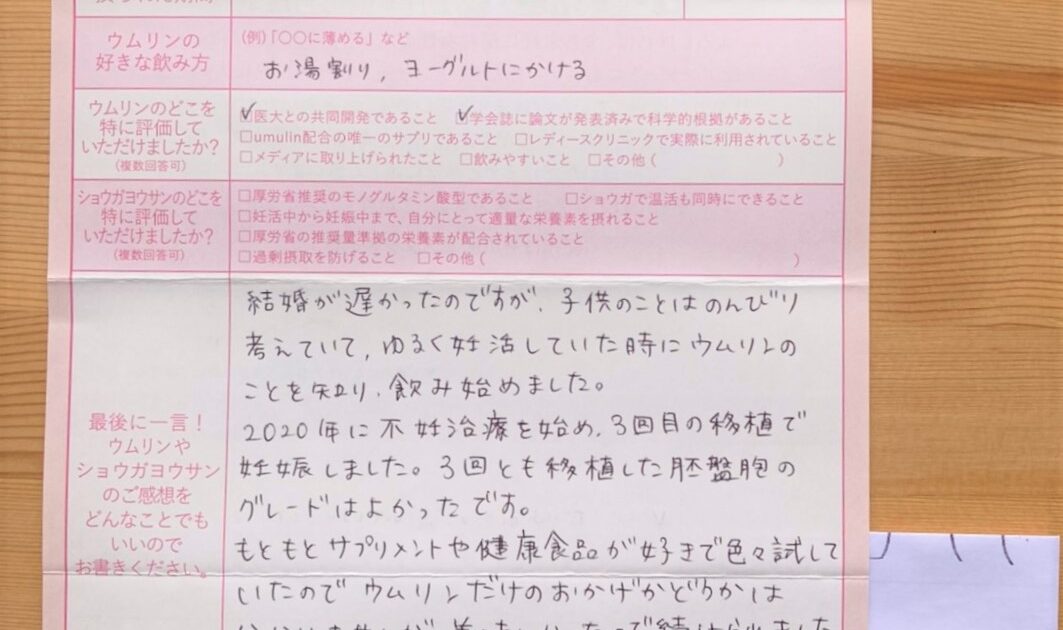 ウムリンの
好きな飲み方
(例)「〇〇に薄める」など
お湯割り, ヨーグルトにかける
ウムリンのどこを
特に評価して
いただけましたか?
(複数回答可)
☑医大との共同開発であること ☑学会誌に論文が発表済みで科学的根拠があること
□umulin配合の唯一のサプリであること □レディースクリニックで実際に利用されていること
□メディアに取り上げられたこと □飲みやすいこと □その他 ( )
ショウガヨウサンのどこを
特に評価して
いただけましたか?
(複数回答可)
□厚労省推奨のモノグルタミン酸型であること □ショウガで温活も同時にできること
□妊活中から妊娠中まで、自分にとって適量な栄養素を摂れること
□厚労省の推奨量準拠の栄養素が配合されていること
□過剰摂取を防げること □その他 ( )
最後に一言!
ウムリンや
ショウガヨウサン
のご感想を
どんなことでも
いいので
お書きください。
結婚が遅かったのですが、子供のことはのんびり
考えていて, ゆるく妊活していた時にウムリンの
ことを知り、飲み始めました。
2020年に不妊治療を始め、3回目の移植で
妊娠しました。3回とも移植した胚盤胞の
グレードはよかったです。
もともとサプリメントや健康食品が好きで色々試して
いたのでウムリンだけのおかげかどうかは